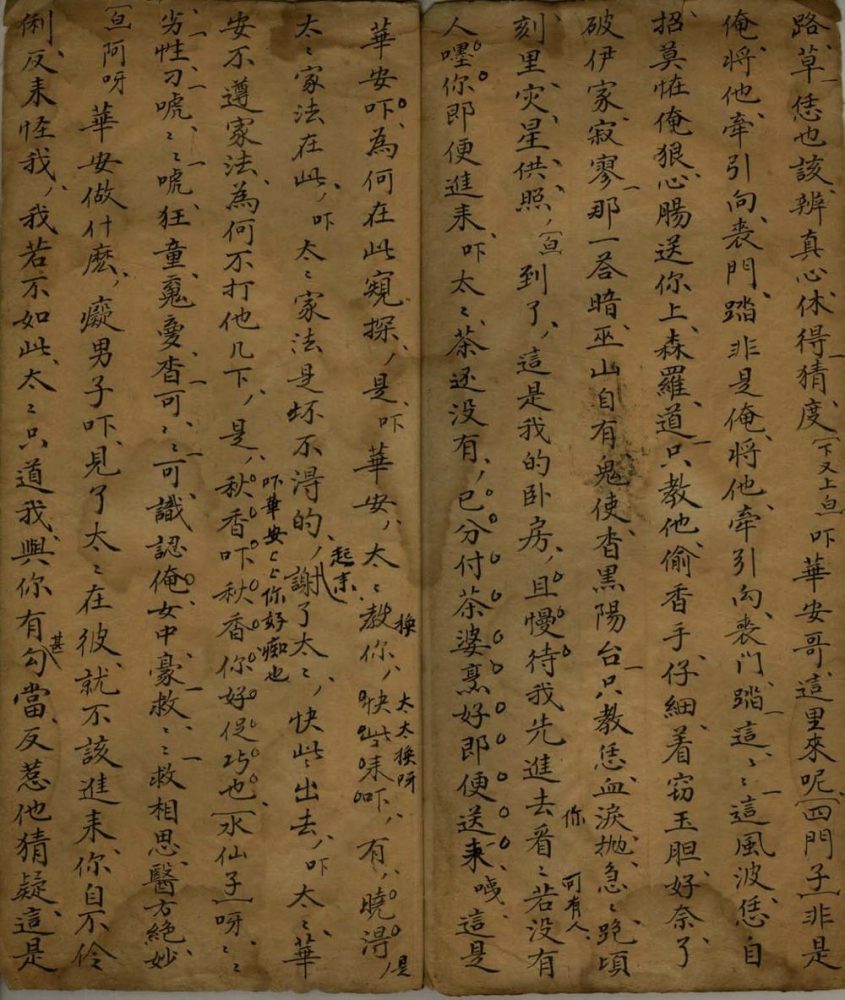 路草恁也該辨真心休得猜度〔下又上〕〔白〕吓華安哥這里來呢〔四門子〕非是
俺將他牽引向喪門踏非是俺將他牽引向喪門踏這〻這風波恁自
招莫怪俺狠心腸送你上森羅道只教他偷香手仔細着窃玉胆好奈了
破伊家寂寥那一荅暗巫山自有鬼使杳黑陽台只教恁血淚抛急〻跑頃
刻里灾星供照〔白〕到了這是我的卧房且慢待我先進去看〻若沒有
你 可有人
人嚜你即便進来吓太〻茶还没有已分付茶婆烹好即便送来哦這是
華安吓為何在此窺探是吓華安太〻教你快些来吓有曉淂是
換 太太換呀
太〻家法在此吓太〻家法是坏不淂的謝了太〻快些出去吓太〻華
起来
安不遵家法為何不打他几下是秋香吓秋香你好促巧也〔水仙子〕呀〻〻
吓華安〻〻你好痴也
劣性刁唬〻〻唬狂童寃憂杳可〻〻可識認俺女中豪救〻〻救相思醫方絶妙
〔白〕阿呀華安做什麽癡男子吓見了太〻在彼就不該進来你自不伶
俐反来怪我我若不如此太〻只道我與你有勾當反惹他猜疑這是
甚